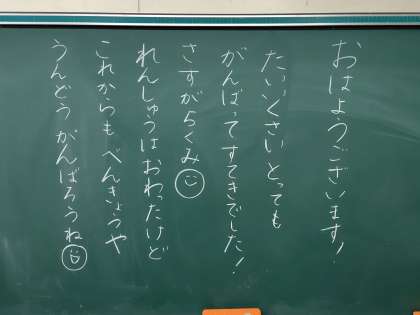 おはようございます!
たいいくさいとっても
がんばってすてきでした!
さすがらくみ
れんしゅうはおわったけど
これからもべんきょうや
うんどうがんばろうね